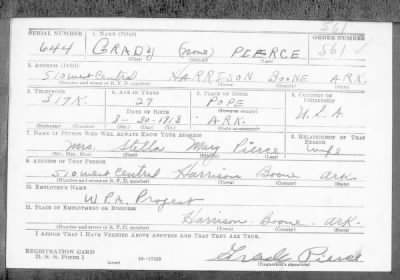 561
SERIAL NUMBER 1. NAME (Print) ORDER NUMBER
644 GRADY (none) PIERCE 561
(First) (Middle) (Last)
2. ADDRESS (Print)
510 west Central HARRISON BOONE ARK.
(Number and street or R. F. D. number) (Town) (County) (State)
3. TELEPHONE 4. AGE IN YEARS 5. PLACE OF BIRTH 6. COUNTRY OF CITIZENSHIP
317K. 27 POPE U.S.A
DATE OF BIRTH (Town or county)
3-30-1913 ARK.
(Exchange) (Number) (Mo.) (Day) (Yr.) (State or country)
7. NAME OF PERSON WHO WILL ALWAYS KNOW YOUR ADDRESS 8. RELATIONSHIP OF THAT PERSON
Mrs. Stella Mary Pierce wife
(Mr., Mrs., Miss) (First) (Middle) (Last)
9. ADDRESS OF THAT PERSON
510 west Central Harrison Boone ark
(Number and street or R. F. D. number) (Town) (County) (State)
10. EMPLOYER'S NAME
W.P.A. Project
11. PLACE OF EMPLOYMENT OR BUSINESS
Harrison. Boone. ark.
(Number and street or R. F. D. number) (Town) (County) (State)
I AFFIRM THAT I HAVE VERIFIED ABOVE ANSWERS AND THAT THEY ARE TRUE.
REGISTRATION CARD
D. S. S. Form 1 (over) 16-17105 Grady Pierce
(Registrant's signature)